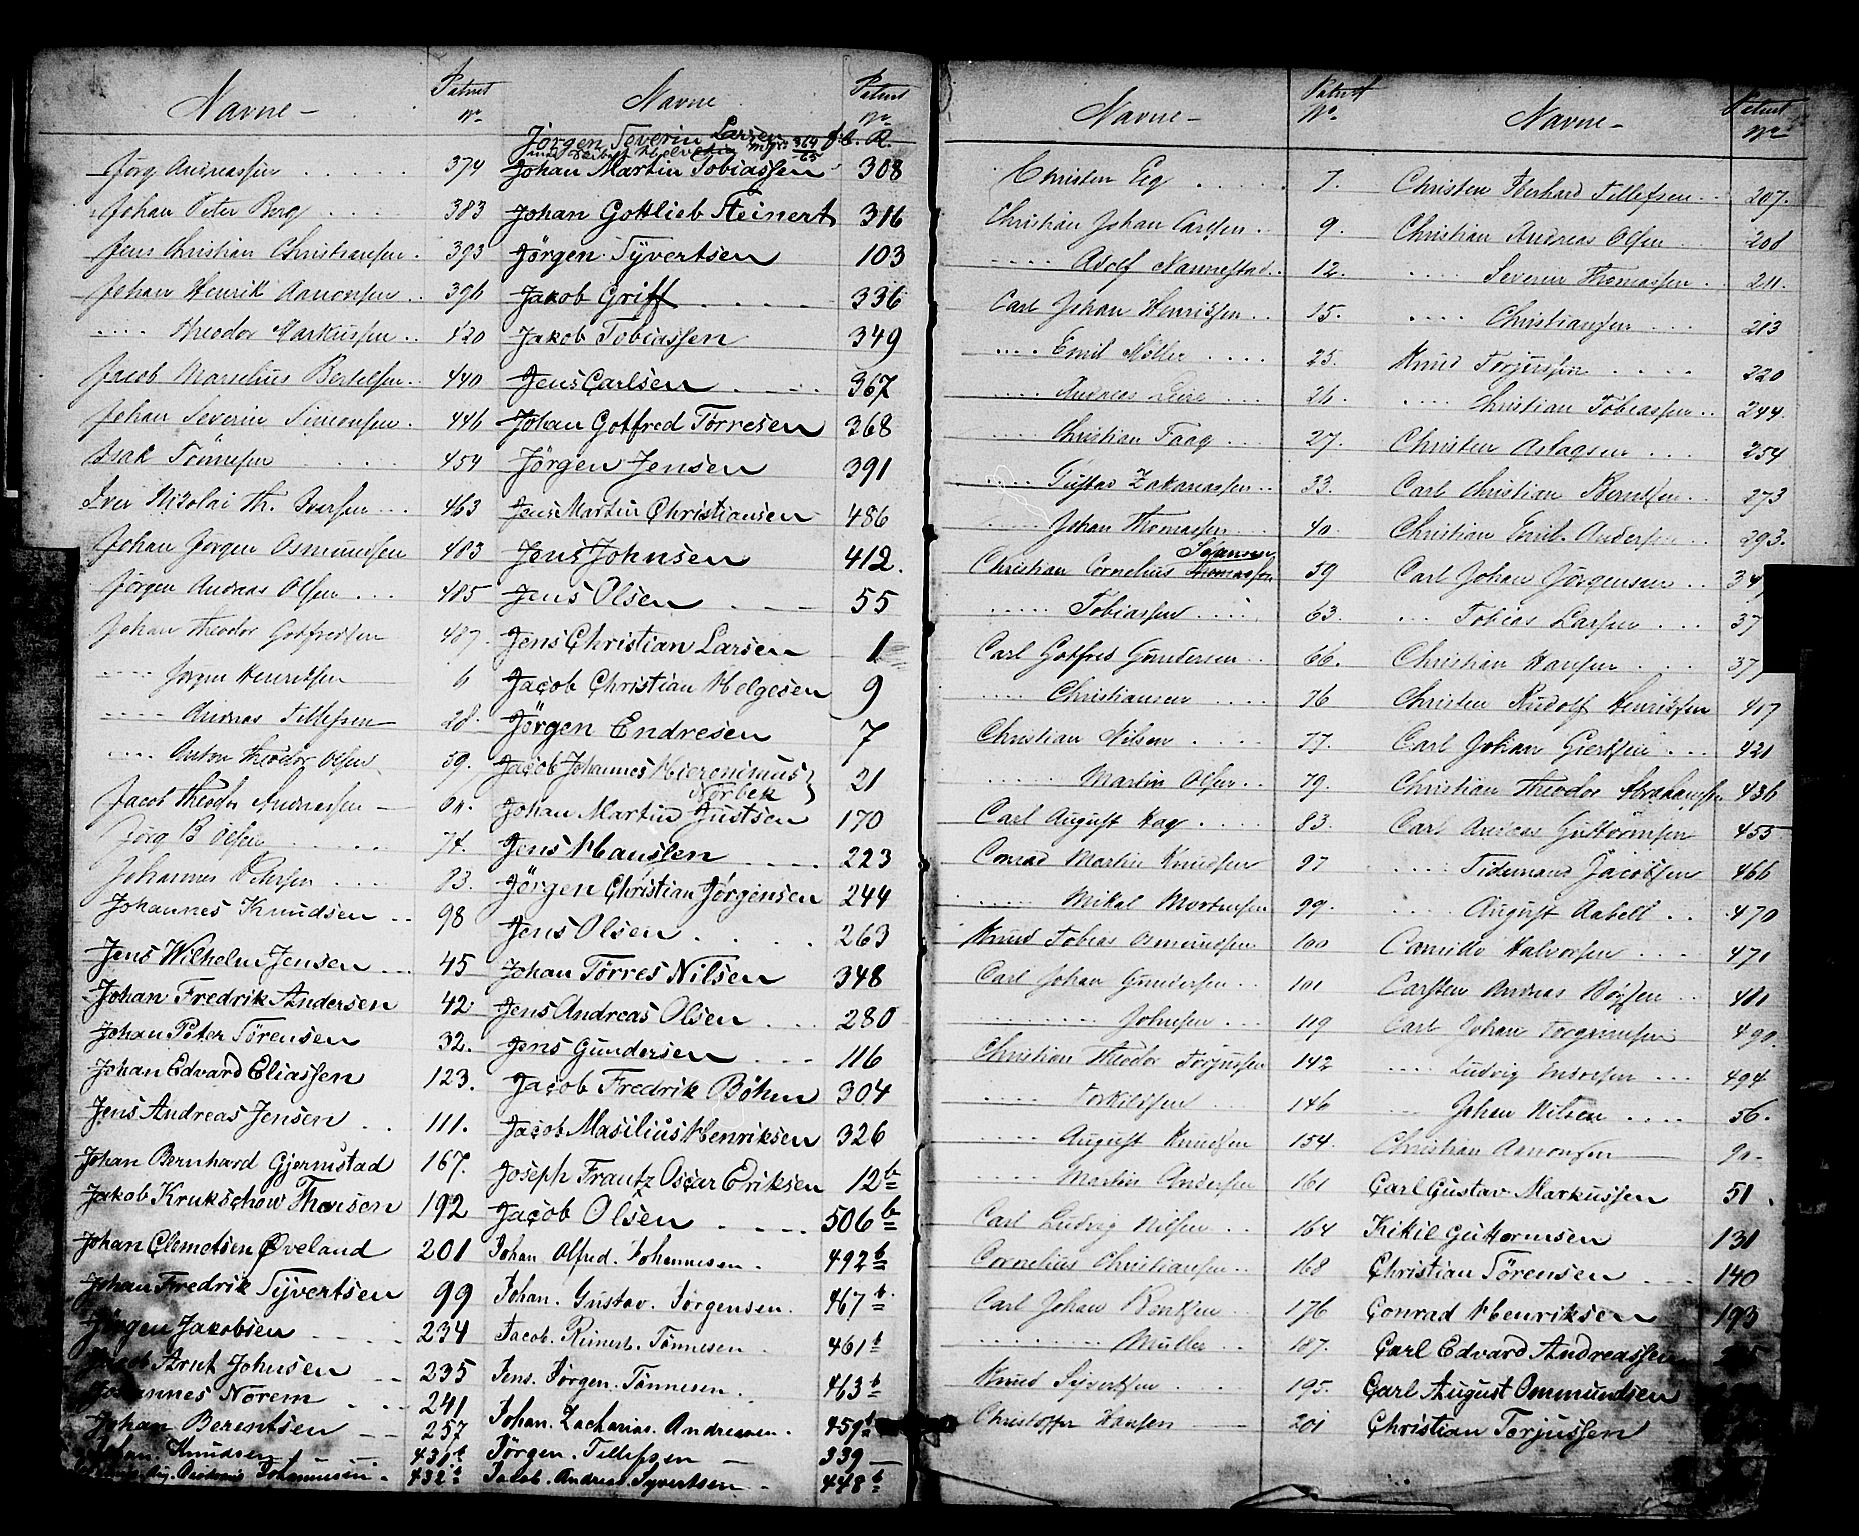 Navne - Patent No
Jørg Andreassen . . . . . 374
Johan Peter Berg . . . . 383
Jens Christian Christiansen . 393
Johan Henrik Aanonsen . . 396
. . . . Theodor Markussen . . 420
Jacob Marselius Bertelsen . . 440
Johan Severin Simonsen . 446
Isak Tönnesen . . . . . 454
Iver Nikolai Th. Iversen . . . 463
Johan Jørgen Osmundsen 483
Jörgen Andreas Olsen . . . 485
Johan Theodor Gotfredsen 487
. . . . Jørgen Henriksen 6
. . . . Andreas Tellefsen 28
. . . . Anton Theodor Olsen 59
Jacob Theodor Andreassen
Jørg B Olsen . . . . 74
Johannes Petersen . . . . 83
Johannes Knudsen . . 98
Jens Wilhelm Jensen . . . 45
Johan Fredrik Andersen 42
Johan Peter Törensen 32.
Johan Edvard Eliassen 123.
Jens Andreas Jensen . . 111.
Johan Bernhard Gjermstad 167.
Jakob Krukschow Thomson 192
Johan Clemetsen Øveland 201
Johan Fredrik Syvertsen 99
Jörgen Jacobsen . . . . 234
Jacob Arnt Johnsen . . 235
Johannes Norem . . . 241
Johan Berentsen . . 257
Johan Knudsen 431 b
Johannesen . 432 b
Navne Patent No
Jörgen Severin Larsen 364/65
Johan Martin Tobiassen 308
Johan Gottlieb Steinert 316
Jörgen Syvertsen 103
Jakob Griff . . . . 336
Jakob Tobiassen 349
Jens Carlsen . . . . 367
Johan Gotfred Törresen 368
Jörgen Jensen 391
Jens Martin Christiansen 486
Jens Johnsen 412.
Jens Olsen . . . 55
Jens Christian Larsen 1
Jacob Christian Helgesen 9
Jörgen Endresen 7
Jacob Johannes Hieronimus } 21
Norbek
Johan Martin Justsen 170
Jens Hanssen . . . . 223
Jörgen Christian Jørgensen 244
Jens Olsen . . . . . 263
Johan Törres Nilsen 348
Jens Andreas Olsen . . . 280
Jens Gundersen . . . 116
Jacob Fredrik Böhm 304
Jacob Masilius Henriksen 326
Joseph Frantz Oscar Eriksen 12 b
Jacob Olsen . . . . 506 b
Johan Alfred Johannesen . 492 b
Johan. Gustav. Jörgensen. 467 b
Jacob. Reinert. Tönnesen . 461 b
Jens. Jörgen. Tönnesen . 463 b
Johan. Zacharias. Andreassen . 459 b
Jörgen. Tellefsen — 339
Jacob. Andreas. Syvertsen - 448 b
Navne - Patent No.
Christen Eeg . . . . . 7.
Christian Johan Carlsen . . 9.
. . . . . Adolf Nannestad . . 12.
Carl Johan Henriksen . . 15.
. . . . Emil Möller . . . . 25.
. . . . Andreas . . . 26.
. . . . Christian Faag . . . 27.
. . . . Gustav Zakariassen . . 33.
. . . . Johan Thomassen 40.
Svansen
Christian Cornelius Thomassen 59
. . . . . Tobiassen . . . . 63.
Carl Gotfred Gundersen . . 66.
. . . . Christiansen . . . . 76
Christian Nilsen . . . . 77.
. . . . . Martin Olsen . . 79.
Carl August Hag . . . . 83.
Conrad Martin Knudsen 97
. . . . . Mikal Mortensen 99.
Knud Tobias Osmundsen 100
Carl Johan Gundersen . . 101
. . . . . . . . Johnsen . . . 119
Christian Theodor Torjussen 142
. . . . . Torkildsen 146
. . . . . August Knudsen 154.
. . . . . Martin Andersen 161
Carl Ludvig Nilsen . . 164
Cornelius Christiansen . . 168
Carl Johan Bentsen 176
. . . . . . . . . Müller . . 187.
Knud Syvertsen . . 195.
Christoffer Hansen 201
Navne - Patent No
Christen Eberhard Tellefsen . . 207.
Christian Andreas Olsen 208
. . . . Severin Thomassen . . 211.
. . . . Christiansen . . . 213
Knud Torjussen . . . . . 220
. . . . Christian Tobiassen . . 244.
Christen Aslagsen . . . 254
Carl Christian Berntsen . . 273
Christian Emil Andersen . . 293.
Carl Johan Jörgensen . . 34
. . . Tobias Larsen . . . 37
Christian Hansen . . . . 37
Christen Rudolf Henriksen 417
Carl Johan Giertsen . . . 421
Christian Theodor Abrahamsen 436
Carl Andreas Guttormsen 455
. . . . Tidemand Jacobsen 466
. . . . August Aabell . . 470
Camillo Halvorsen . . . . 471
Carsten Andreas . . 481
Carl Johan Torgrimsen 490.
. . . . Ludvig . . . 494
. . . Johan Nilsen . . . . 56.
Christian Aanonsen — 90 -
Carl Gustav Markussen 51.
Kikil Guttormsen 131
Christian Törensen . . . 140
Conrad Henriksen 193
Carl Edvard Andreassen
Carl August Ommundsen
Christian Torjussen